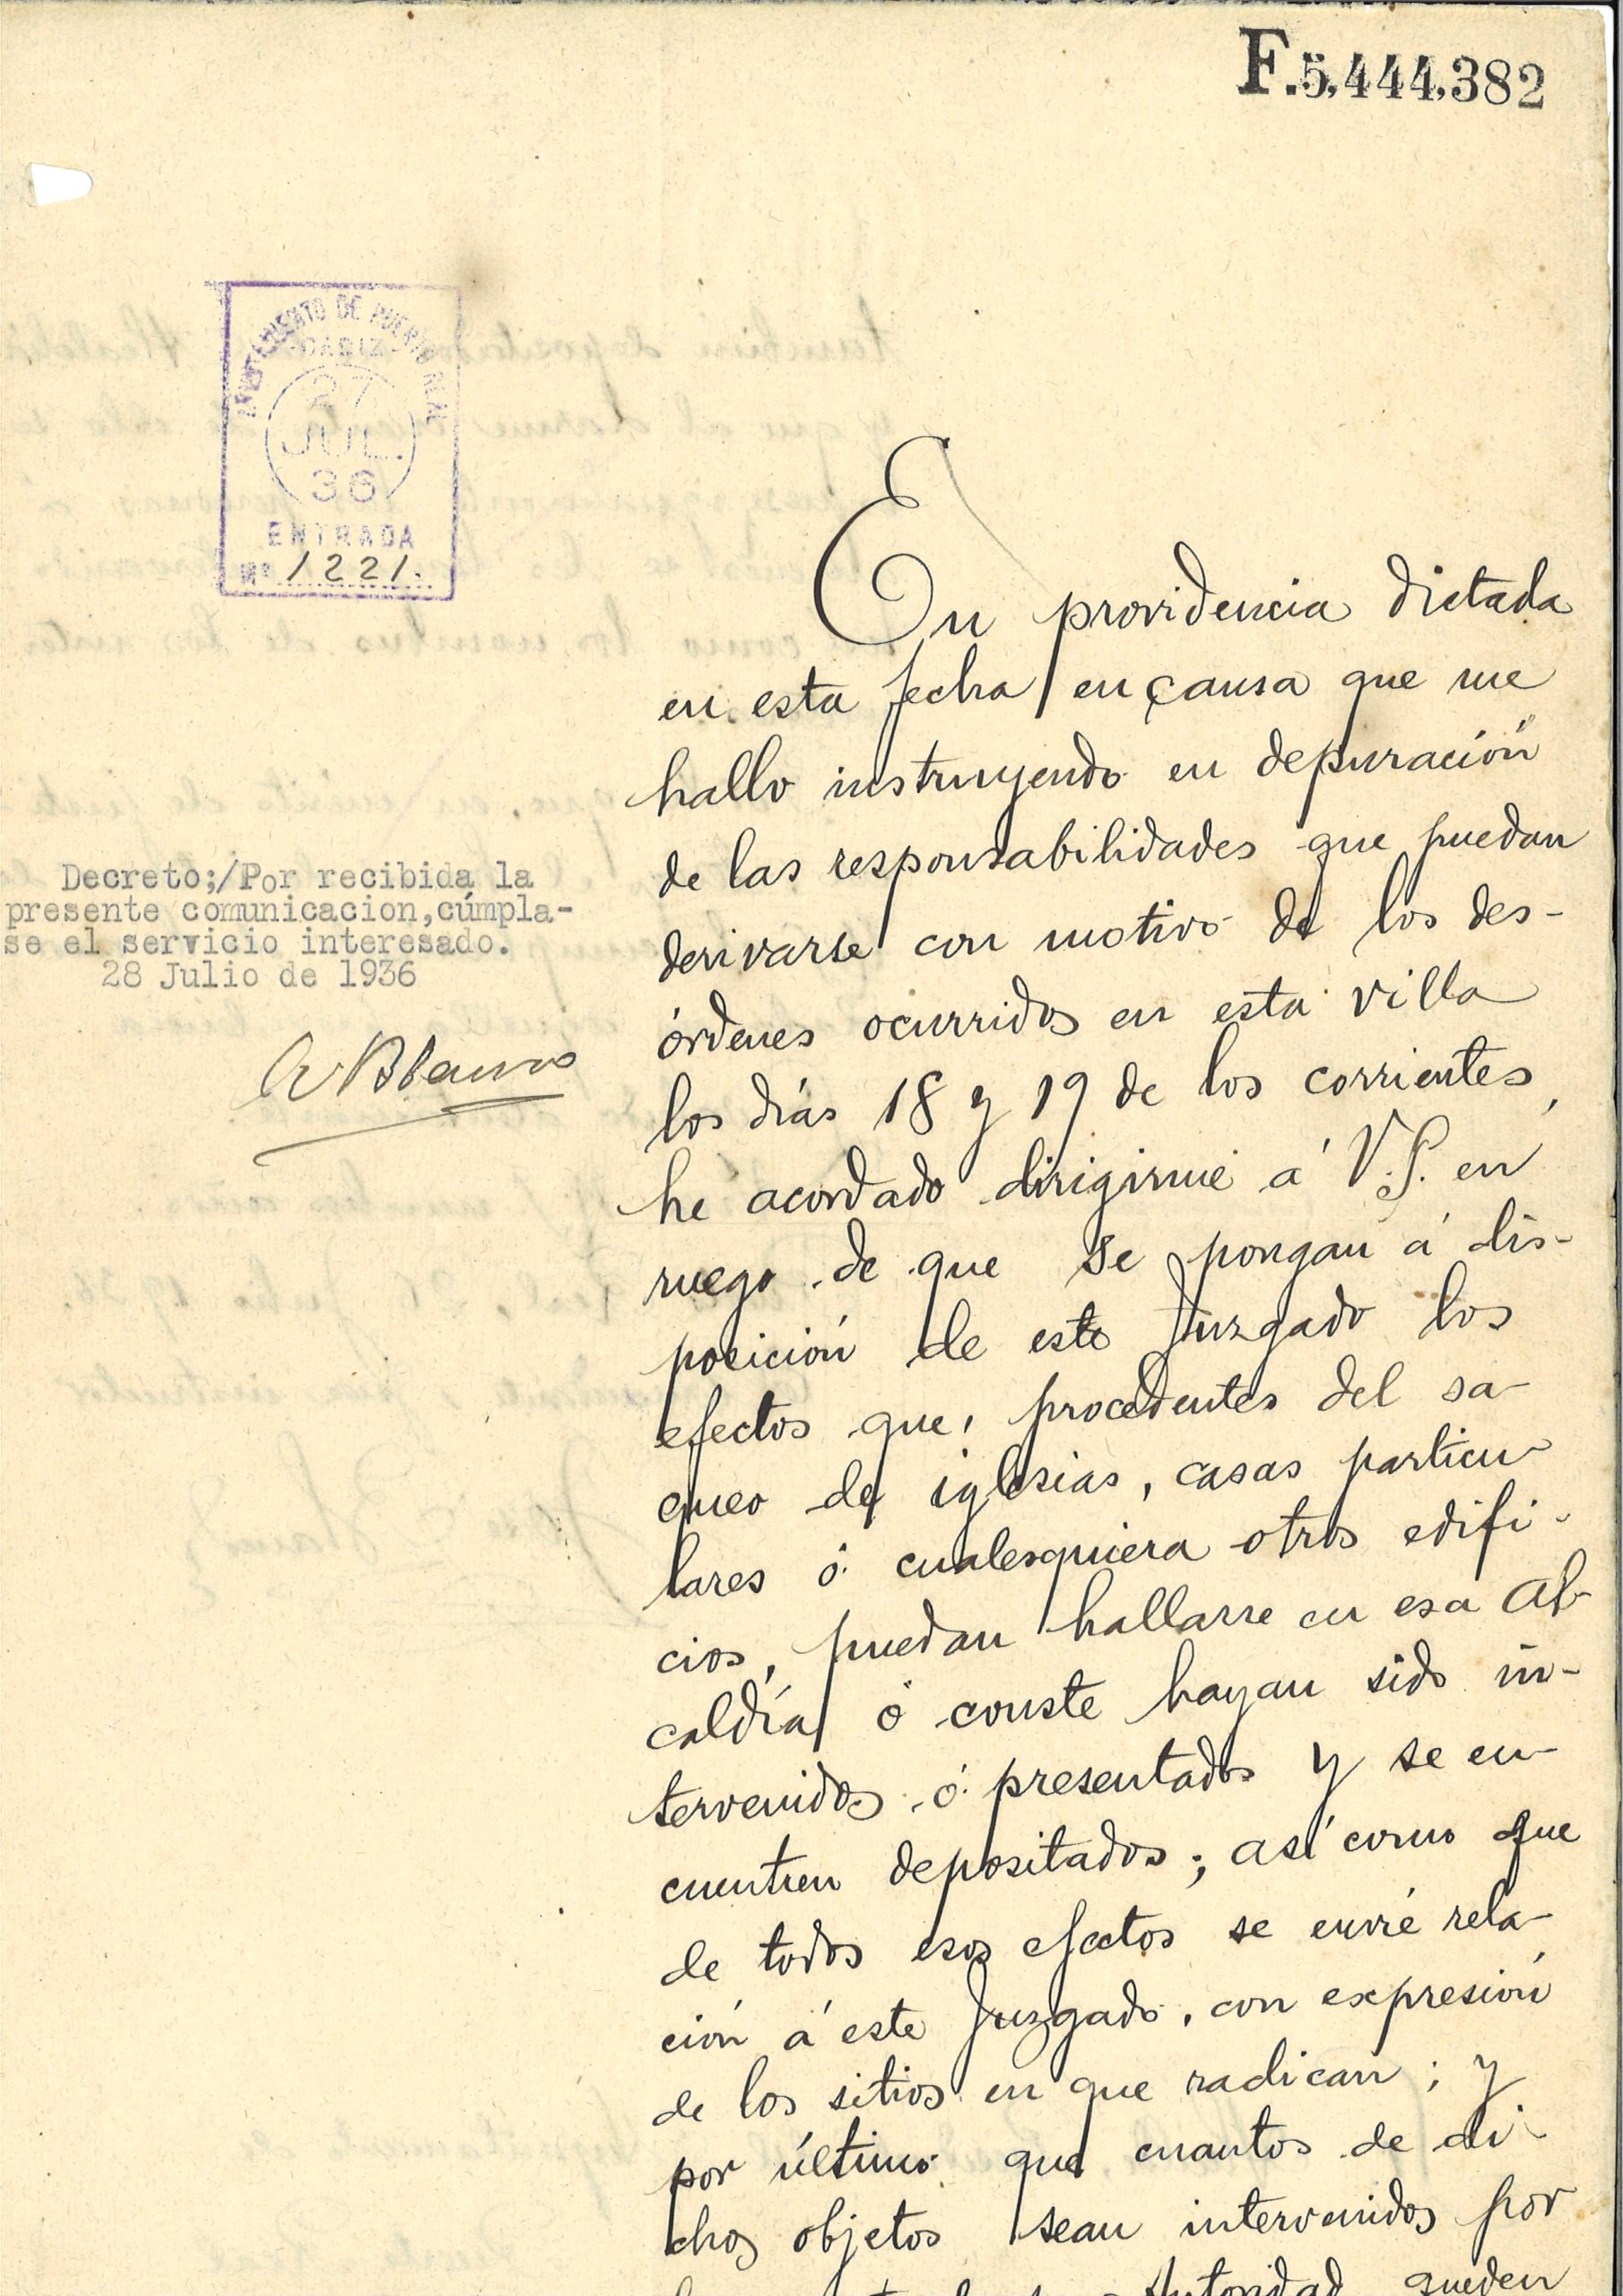 F.5,444,382
AYUNTAMIENTO DE PUERTO REAL
-CADIZ-
27
JUL.
36
ENTRADA
Nº 1221.
Decreto;/Por recibida la
presente comunicacion,cúmpla-
se el servicio interesado.
28 Julio de 1936
Blanco
En providencia dictada
en esta fecha en causa que me
hallo instruyendo en depuración
de las responsabilidades que puedan
derivarse con motivo de los des-
órdenes ocurridos en esta villa
los días 18 y 19 de los corrientes,
he acordado dirigirme á V.S. en
ruego de que se pongan á dis-
posición de este Juzgado los
efectos que, procedentes del sa-
queo de iglesias, casas particu-
lares ó cualesquiera otros edifi-
cios, puedan hallarse en esa Al-
caldía ó conste hayan sido in-
tervenidos ó presentados y se en-
cuentren depositados; así como que
de todos esos efectos se envíe rela-
ción á este Juzgado, con expresión
de los sitios en que radican; y
por último que cuantos de di-
chos objetos sean intervenidos por
Autoridad queden